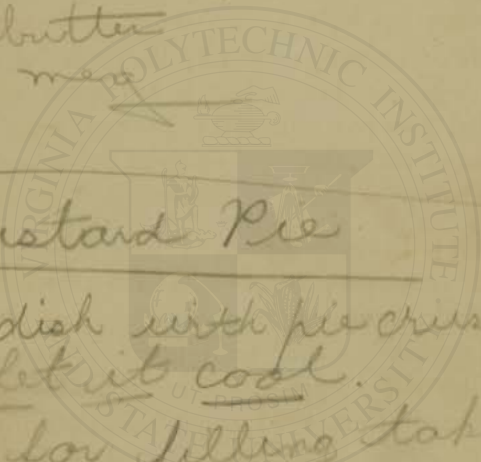 butter
meg
ustard Pie
dish with pie crus
let it cool.
for filling tak
VIRGINIA POLYTECHNIC INSTITUTE
STATE UNIVERSITY
UT PROSIM